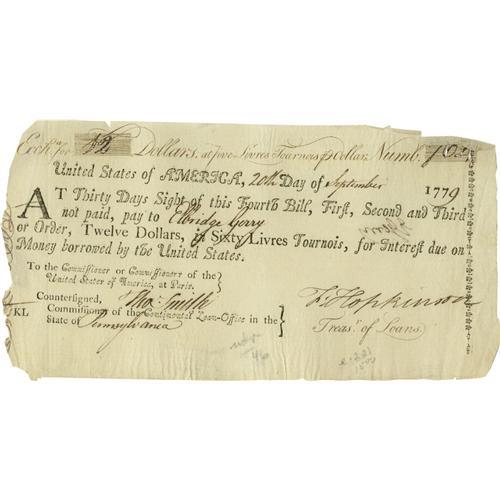 Exch.ª for 12 Dollars, at five Livres Tournois ꝑ Dollar, Numb.
United States of AMERICA, 20th Day of September 1779
AT Thirty Days Sight of this Fourth Bill, First, Second and Third
not paid, pay to Elbridge Gerry
or Order, Twelve Dollars, in Sixty Livres Tournois, for Interest due on
Money borrowed by the United States.
To the Commissioner or Commissioners of the
United States of America, at Paris.
Countersigned, Tho.s Smith
KL Commissioner of the Continental Loan-Office in the
State of Pennsylvania
F. Hopkinson
Treas.r of Loans.